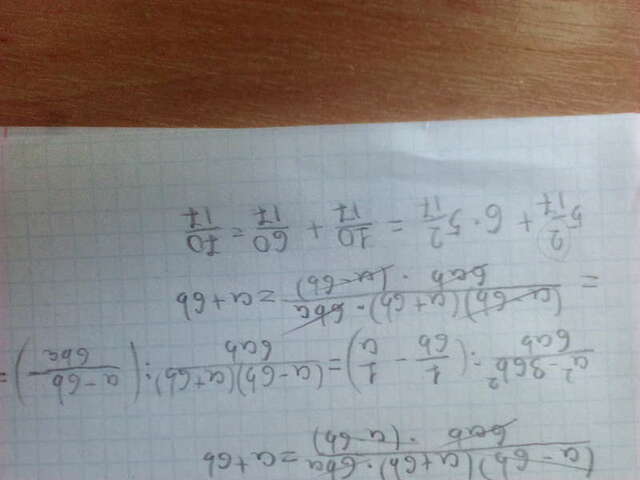 (a-6b)(a+6b)·6ba / 6ab·(a-6b) = a+6b
a²-36b² / 6ab : (1/6b - 1/a) = (a-6b)(a+6b) / 6ab : (a-6b / 6ba) =
= (a-6b)(a+6b)·6ba / 6ab·(a-6b) = a+6b
5 2/17 + 6·5 2/17 = 10/17 + 60/17 = 70/17